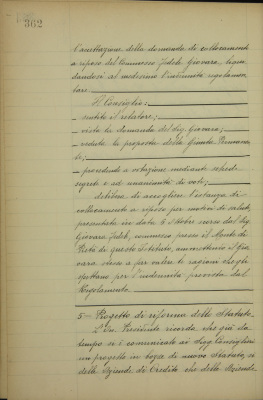 362
l'accettazione della domanda di collocamento
a riposo del Commesso Fedele Giovara, liquidandosi al medesimo l'indennità regolamentare.
Il Consiglio:
- sentito il relatore;
- vista la domanda del Sig. Giovara;
- veduta la proposta della Giunta Permanente;
- procedendo a votazione mediante schede
segrete e ad unanimità di voti;
delibera di accogliere l'istanza di
collocamento a riposo per motivi di salute,
presentata in data 5 Ottobre corso dal Sig.
Giovara Fedele, commesso presso il Monte di
Pietà di questo Istituto, ammettendo il Giovara stesso a far valere le ragioni che gli
spettano per l'indennità prevista dal
Regolamento.
5 - Progetto di riforma dello Statuto.
L'On. Presidente ricorda che già da
tempo si è comunicato ai Sigg. Consiglieri
un progetto in bozza di nuovo Statuto, sì
della Azienda di Credito che della Azienda